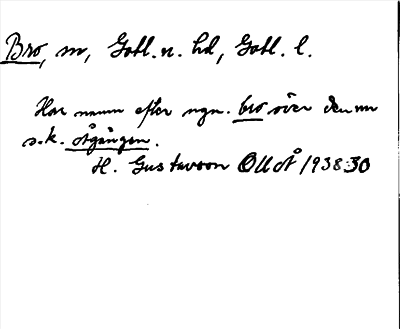 Bro, sn, Gotl. n. hd, Gotl. l.
Har namn efter ngn. bro över denna
s.k. Ågången.
H. Gustavson OUÅ 1938:30